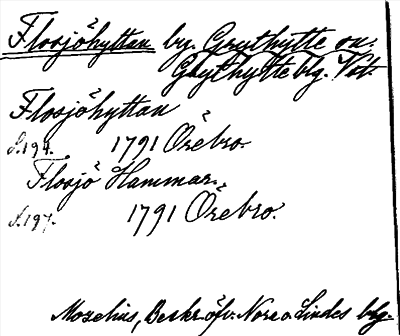 Flosjöhyttan by. Grythytte sn.
Grythytte blg. Vstl.
Flosjöhyttan
s.194. 1791 Örebro.
Flosjö Hammar.
s.197. 1791 Örebro.
Mozelius, Beskr. öfv. Nora o. Lindes blg.